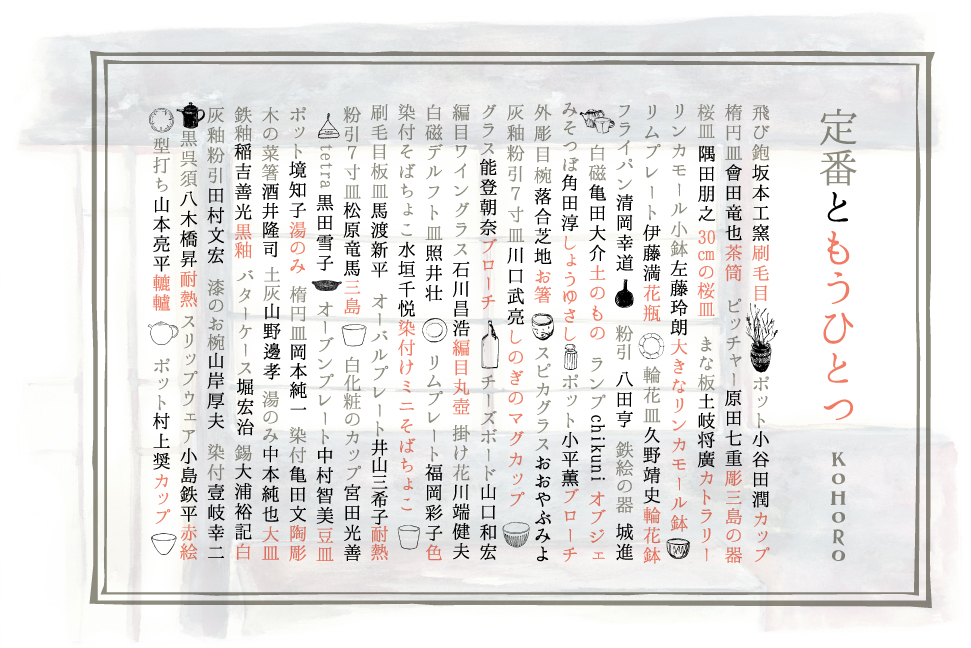 定番ともうひとつ
KOHORO
飛び鉋坂本工窯刷毛目 ポット小谷田潤カップ
楕円皿會田竜也茶筒 ピッチャー原田七重彫三島の器
桜皿隅田朋之30㎝の桜皿 まな板土岐将廣カトラリー
リンカモール小鉢左藤玲朗大きなリンカモール鉢
リムプレート伊藤満花瓶 輪花皿久野靖史輪花鉢
フライパン清岡幸道 粉引 八田亨 鉄絵の器 城進
白磁亀田大介土のもの ランプchikuniオブジェ
みそつぼ角田淳しょうゆさし ポット小平薫ブローチ
外彫目椀落合芝地お箸 スピカグラスおおやぶみよ
灰釉粉引7寸皿川口武亮しのぎのマグカップ
グラス能登朝奈ブローチ チーズボード山口和宏
編目ワイングラス石川昌浩編目丸壺 掛け花川端健夫
白磁デルフト皿照井壮 リムプレート福岡彩子色
染付そばちょこ水垣千悦染付けミニそばちょこ
刷毛目板皿馬渡新平 オーバルプレート井山三希子耐熱
粉引7寸皿松原竜馬三島 白化粧のカップ宮田光善
tetra黒田雪子 オーブンプレート中村智美豆皿
ポット境知子湯のみ 楕円皿岡本純一 染付亀田文陶彫
木の菜箸酒井隆司 土灰山野邊孝 湯のみ中本純也大皿
鉄釉稲吉善光黒釉 バターケース堀宏治 錫大浦裕記白
灰釉粉引田村文宏 漆のお椀山岸厚夫 染付壹岐幸二
黒呉須八木橋昇耐熱スリップウェア小島鉄平赤絵
型打ち山本亮平轆轤 ポット村上奨カップ